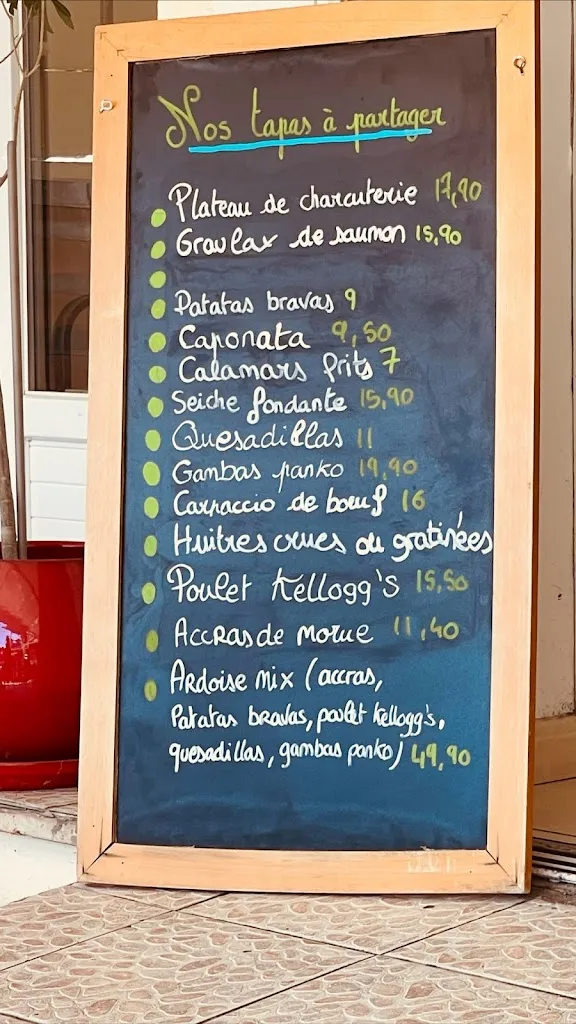 Nos tapas à partager
Plateau de charcuterie 17,90
Gravlax de saumon 15,90
Patatas bravas 9
Caponata 9,50
Calamars frits 7
Seiche fondante 15,90
Quesadillas 11
Gambas panko 19,90
Carpaccio de bœuf 16
Huîtres crues ou gratinées
Poulet Kellogg's 15,50
Accras de morue 11,40
Ardoise mix (accras,
Patatas bravas, poulet kellogg's,
quesadillas, gambas panko) 49,90